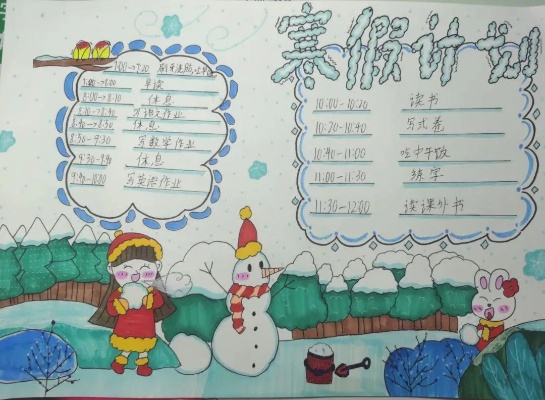 寒假计划
7:00→7:20 刷牙洗脸,吃早饭
→8:00 早读
8:00→8:10 休息
8:10→8:40 写语文作业
8:40→8:50 休息
8:50-9:30 写数学作业
9:30-9:40 休息
9:40-10:00 写英语作业
10:00-10:20 读书
10:20-10:40 写试卷
10:40-11:00 吃中午饭
11:00-11:30 练字
11:30-12:00 读课外书